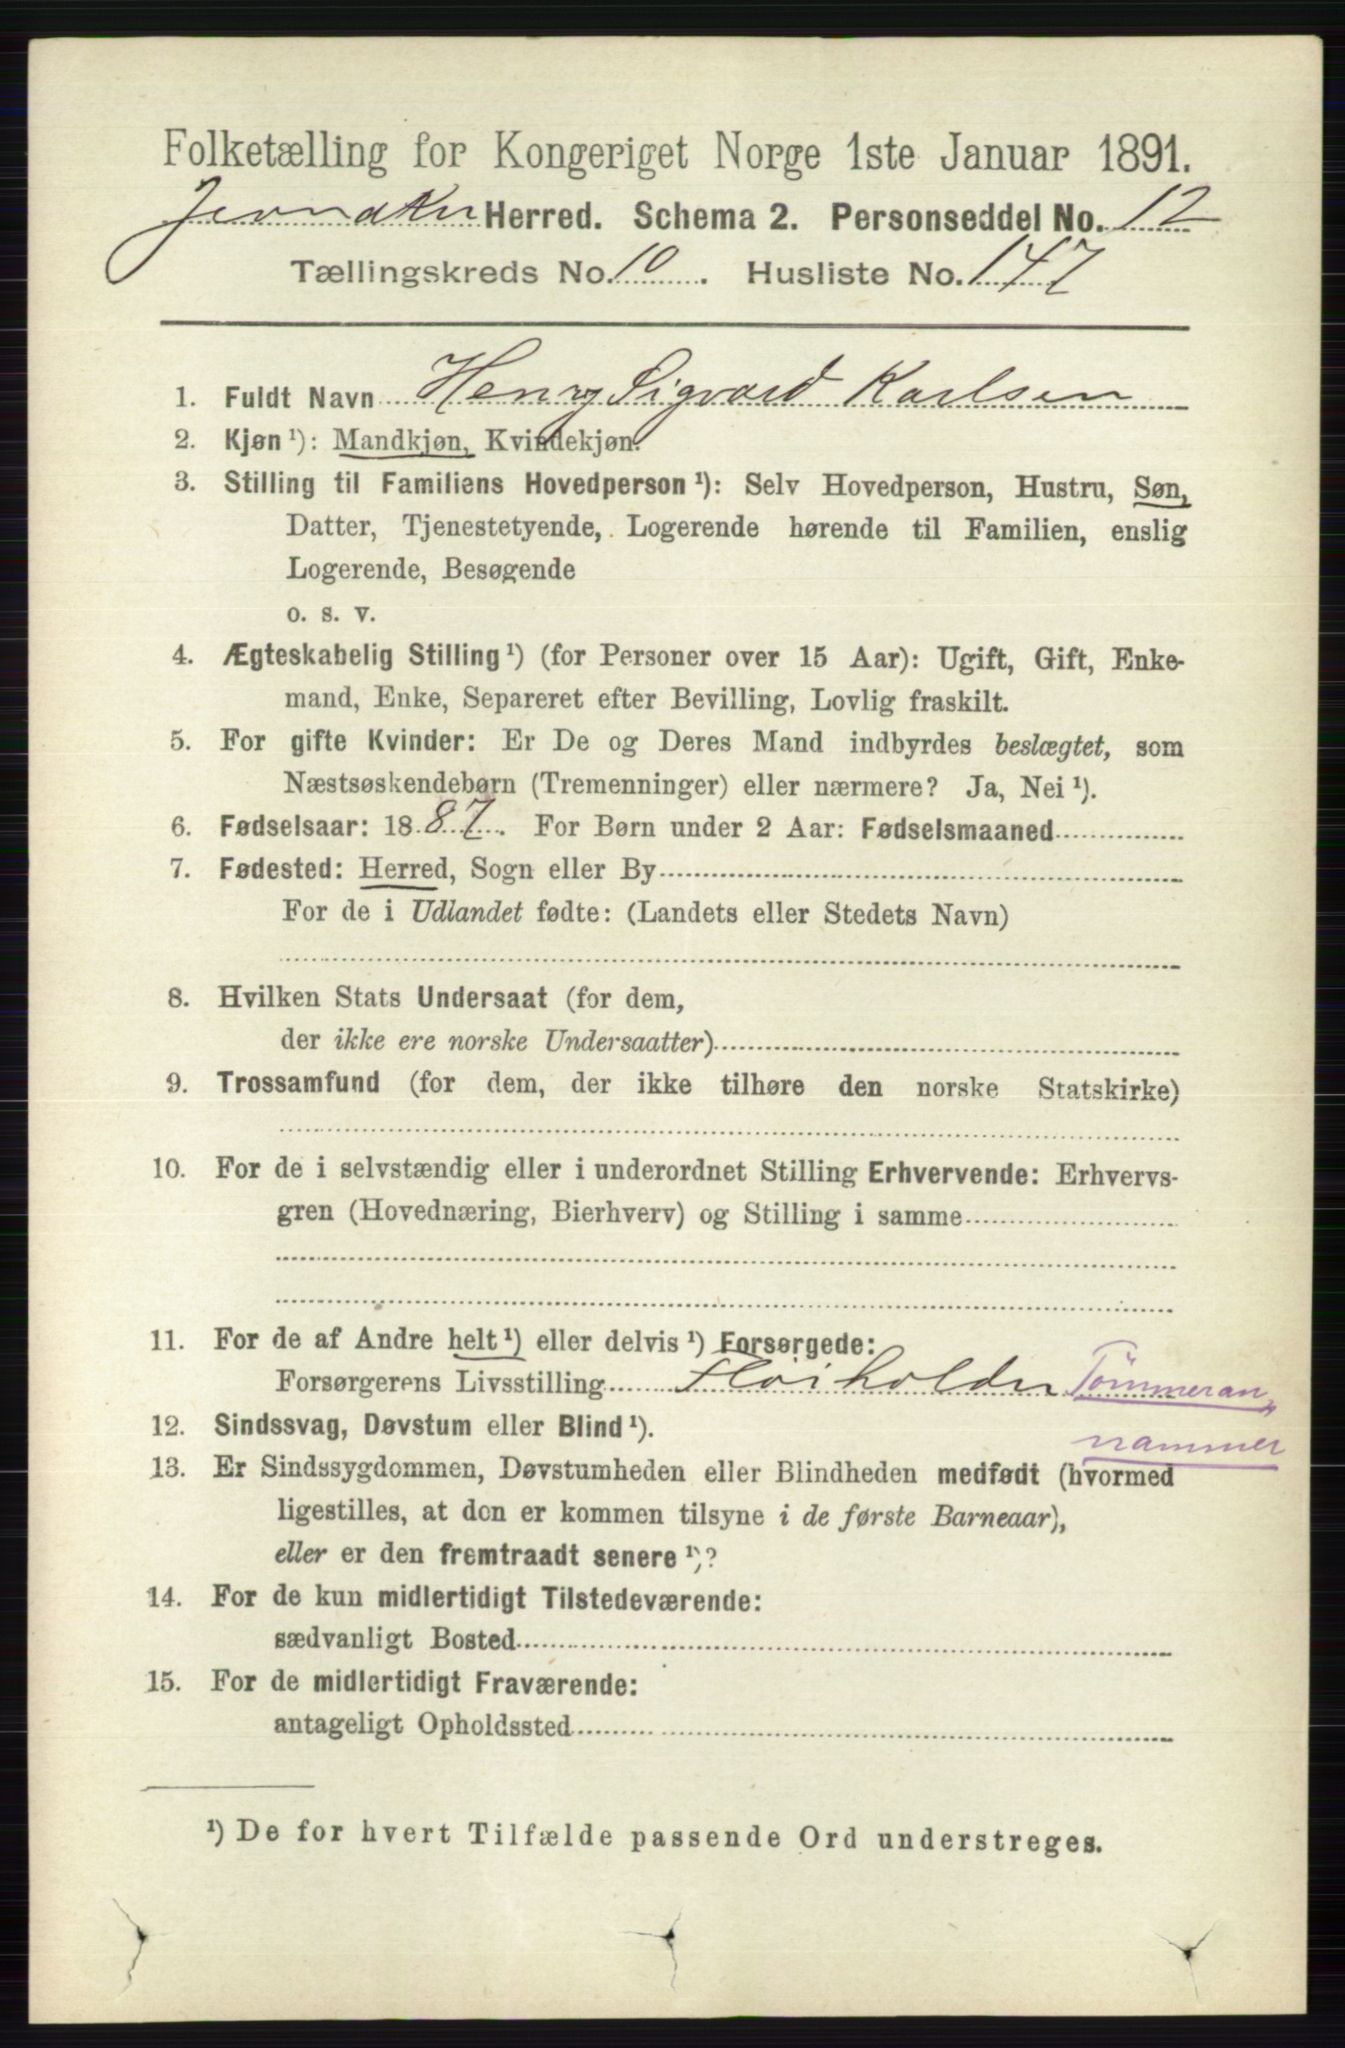 Folketælling for Kongeriget Norge 1ste Januar 1891.
Jevnaker Herred. Schema 2. Personseddel No. 12
Tællingskreds No. 10. Husliste No. 147
1. Fuldt Navn Henry Sigvard Karlsen
2. Kjøn ¹): Mandkjøn, Kvindekjøn.
3. Stilling til Familiens Hovedperson ¹): Selv Hovedperson, Hustru, Søn,
Datter, Tjenestetyende, Logerende hørende til Familien, enslig
Logerende, Besøgende
o. s. v.
4. Ægteskabelig Stilling ¹) (for Personer over 15 Aar): Ugift, Gift, Enke-
mand, Enke, Separeret efter Bevilling, Lovlig fraskilt.
5. For gifte Kvinder: Er De og Deres Mand indbyrdes beslægtet, som
Næstsøskendebørn (Tremenninger) eller nærmere? Ja, Nei ¹).
6. Fødselsaar: 1887. For Børn under 2 Aar: Fødselsmaaned
7. Fødested: Herred, Sogn eller By
For de i Udlandet fødte: (Landets eller Stedets Navn)
8. Hvilken Stats Undersaat (for dem,
der ikke ere norske Undersaatter)
9. Trossamfund (for dem, der ikke tilhøre den norske Statskirke)
10. For de i selvstændig eller i underordnet Stilling Erhvervende: Erhvervs-
gren (Hovednæring, Bierhverv) og Stilling i samme
11. For de af Andre helt ¹) eller delvis ¹) Forsørgede:
Forsørgerens Livsstilling Fløiholder Tömmeran
nammer
12. Sindssvag, Døvstum eller Blind ¹).
13. Er Sindssygdommen, Døvstumheden eller Blindheden medfødt (hvormed
ligestilles, at den er kommen tilsyne i de første Barneaar),
eller er den fremtraadt senere ¹)?
14. For de kun midlertidigt Tilstedeværende:
sædvanligt Bosted
15. For de midlertidigt Fraværende:
antageligt Opholdssted
¹) De for hvert Tilfælde passende Ord understreges.